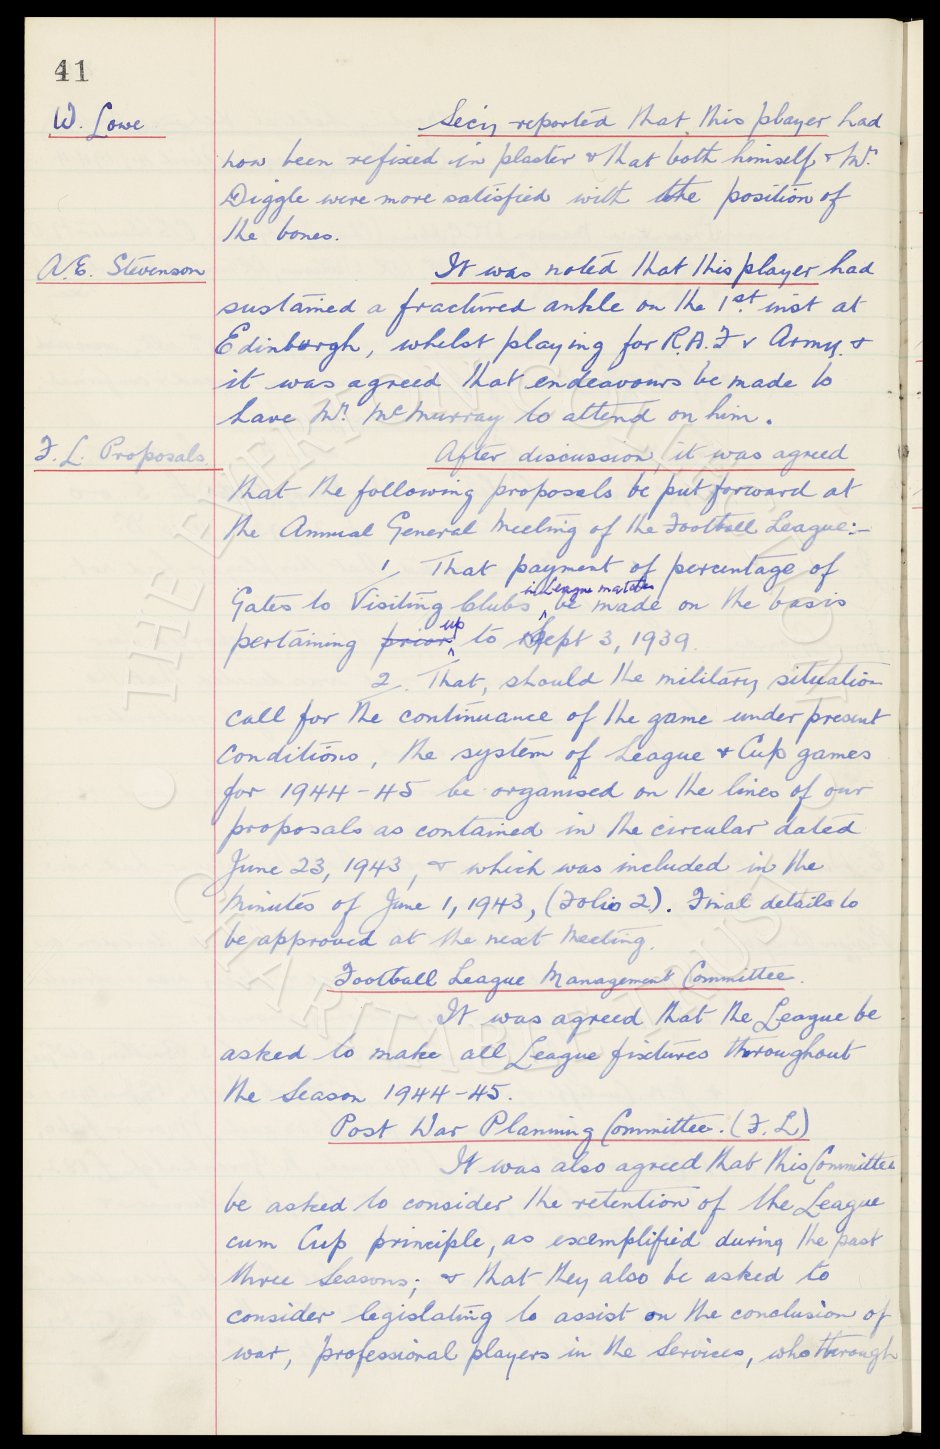 41
W. Lowe
Secy reported that this player had
now been refixed in plaster & that both himself & Mr.
Diggle were more satisfied with the position of
the bones.
A.E. Stevenson
It was noted that this player had
sustained a fractured ankle on the 1st. inst at
Edinburgh, whilst playing for R.A.F v Army. &
it was agreed that endeavours be made to
have Mr. McMurray to attend on him.
F.L. Proposals.
After discussion, it was agreed
that the following proposals be put forward at
the Annual General Meeting of the Football League:-
1, That payment of percentage of
in League matches
Gates to Visiting Clubs be made on the basis
up
pertaining prior to Sept 3, 1939.
2. That, should the military situation
call for the continuance of the game under present
conditions, the system of League & Cup games
for 1944-45 be organised on the lines of our
proposals as contained in the circular dated
June 23, 1943, & which was included in the
Minutes of June 1, 1943, (Folio 2). Final details to
be approved at the next Meeting.
Football League Management Committee.
It was agreed that the League be
asked to make all League fixtures throughout
the Season 1944-45.
Post War Planning Committee. (F.L)
It was also agreed that this Committee
be asked to consider the retention of the League
cum Cup principle, as exemplified during the past
three Seasons; & that they also be asked to
consider legislating to assist on the conclusion of
war, professional players in the Services, who through
THE EVERTON COLLECTION
CHARITABLE TRUST